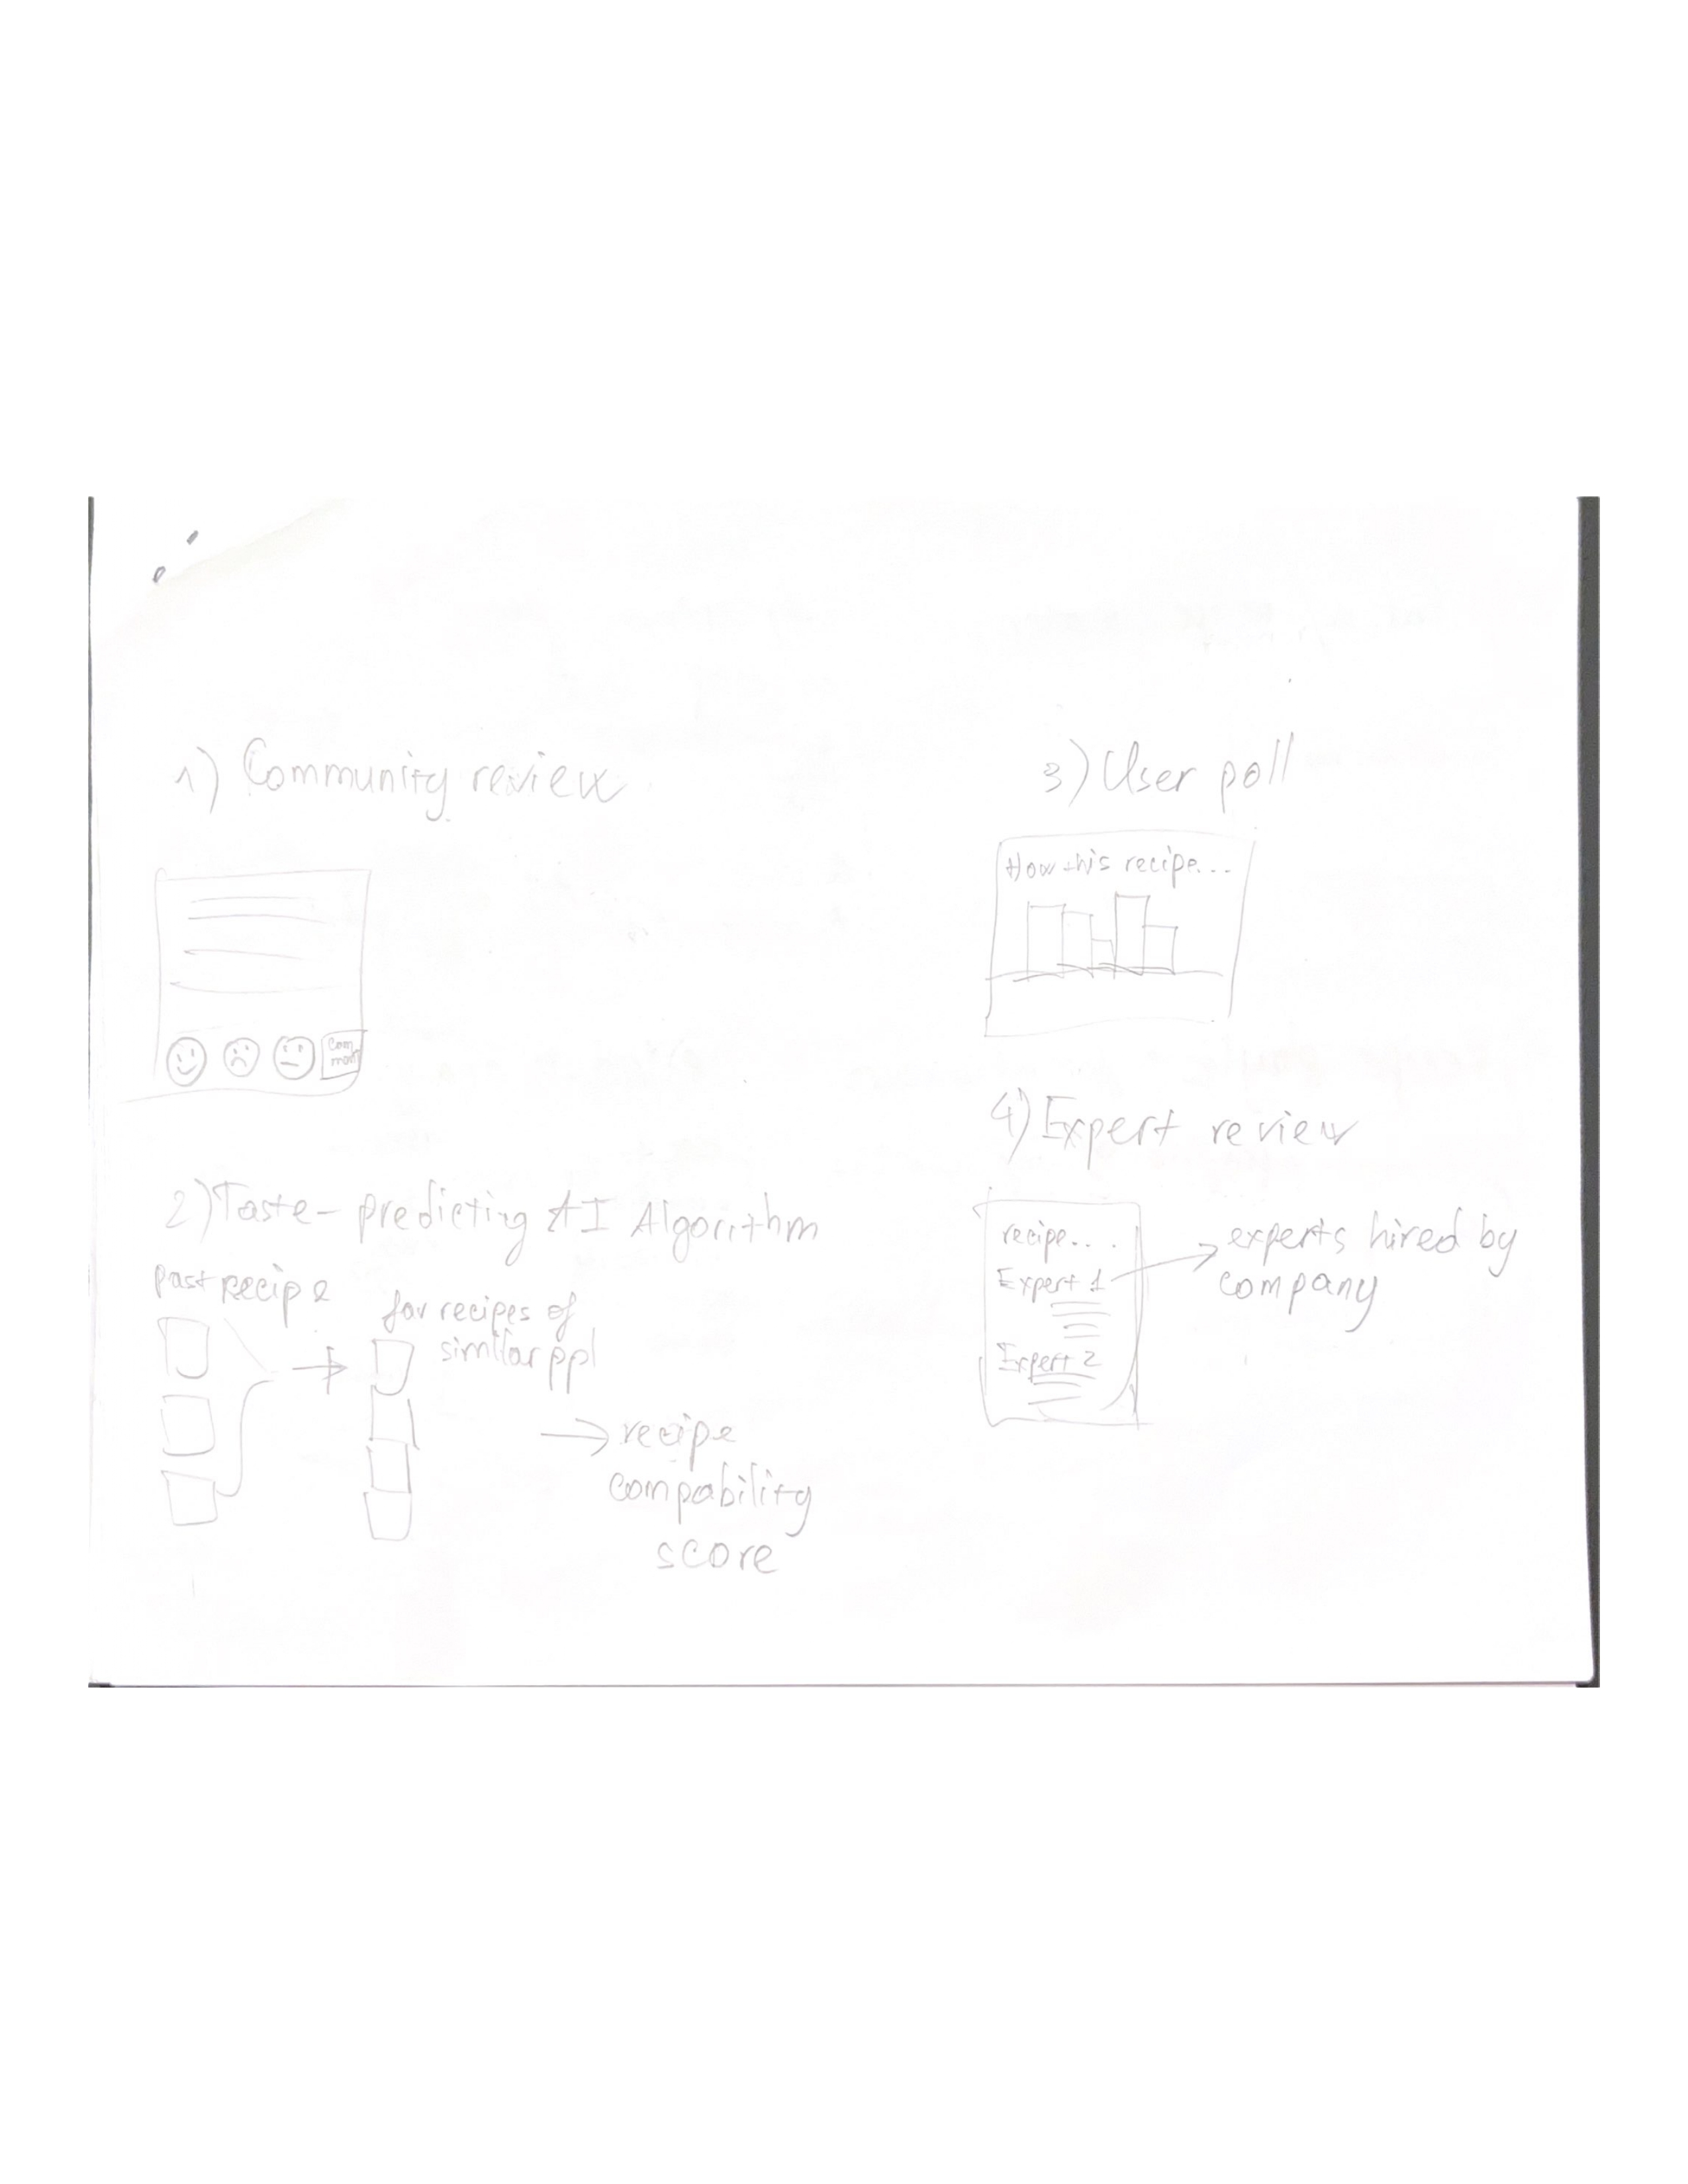 1) Community review
Com
ment
2) Taste-predicting AI Algorithm
past recipe
fav recipes of
similar ppl
→ recipe
compability
score
3) User poll
How this recipe...
4) Expert review
recipe...
Expert 1
Expert 2
→ experts hired by
company